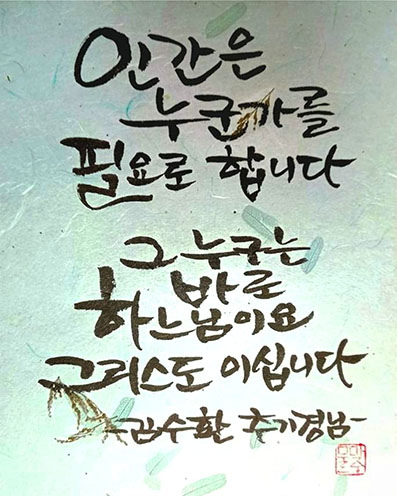 인간은
누군가를
필요로 합니다
그 누구는
바로
하느님이요
그리스도 이십니다
-김수환 추기경님-